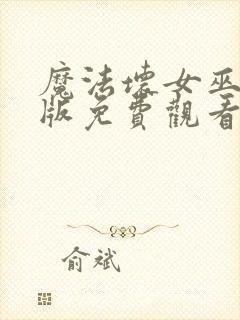 魔法壞女巫
版免費觀看
俞斌